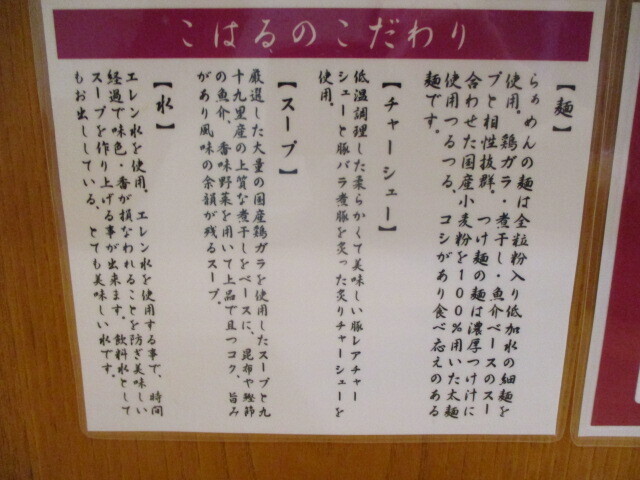 こはるのこだわり
【麺】
らぁめんの麺は全粒粉入り低加水の細麺を
使用。鶏ガラ・煮干し・魚介ベースのスー
プと相性抜群。つけ麺の麺は濃厚つけ汁に
合わせた国産小麦粉を100%用いた太麺
使用つるつる、コシがあり食べ応えのある
麺です。
【チャーシュー】
低温調理した柔らかくて美味しい豚レアチャー
シューと豚バラ煮豚を炙った炙りチャーシューを
使用。
【スープ】
厳選した大量の国産鶏ガラを使用したスープと九
十九里産の上質な煮干しをベースに、昆布や鰹節
の魚介、香味野菜を用いて上品で且つコク、旨み
があり風味の余韻が残るスープ。
【水】
エレン水を使用。エレン水を使用する事で、時間
経過で味色・香が損なわれることを防ぎ美味しい
スープを作り上げる事が出来ます。飲料水として
もお出ししている、とても美味しい水です。